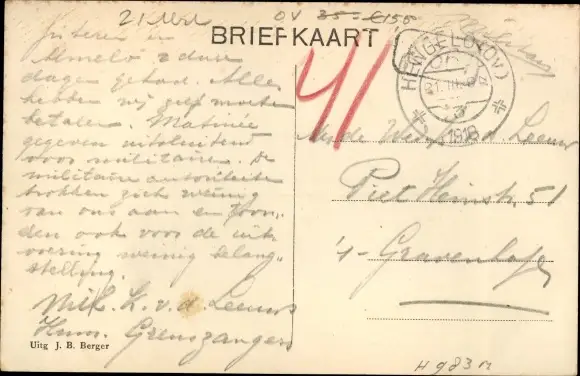 21 Mrt OV 35 = €155
BRIEFKAART
HENGELO (OV)
21.III.
1918
41
in
Almelo 2 dure
dagen gehad. Alles
hebben wij zelf moeten
betalen. Matinée
gegeven uitsluitend
voor militairen. De
militaire autoriteiten
trokken zich weinig
van ons aan en toon-
den ook voor de uit-
voering weinig belang-
stelling.
Mil. K. v. d. Leeuw
Grenszangers
Uitg J. B. Berger
v.d. Leeuw
Piet Heinstr. 51
's-Gravenhage
H 983 M